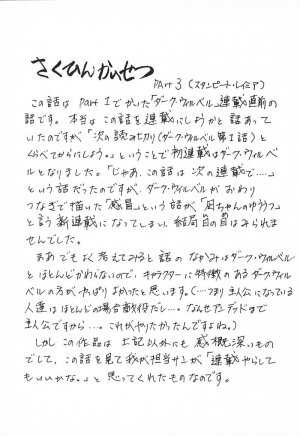 さくひんかいせつ
Part 3 (スタンピート・レイミア)
この話は Part 1でかいた「ダーク・ウィルベル」連載直前の
話です。本当はこの話を連載にしようかと話あって
いたのですが「次の読み切り(ダーク・ウィルベル第1話)と
くらべてからにしよう。」ということで初連載はダーク・ウィルベ
ルとなりました。「じゃあ、この話は次の連載で…。」
という話だったのですが、ダーク・ウィルベルがおわり
つなぎで描いた「感冒」という話が
と言う新連載になってしまい、結局日の目はみられま
せんでした。
まあでもよく考えてみると話のなかみはダーク・ウィルベル
とほとんどかわらないので、キャラクターに特徴のあるダークウィ
ルベルの方がやっぱりよかったと思います。(…つまり主公になっている
人達はほとんどの場合敵役だし…。なんせたデッドまで
主人公ですから…。これがやりたかったんですよね。)
しかしこの作品は上記以外にも感慨深いもの
でして、この話を見て我が担当サンが「連載やらして
もいいかな。」と思ってくれたものなのです。